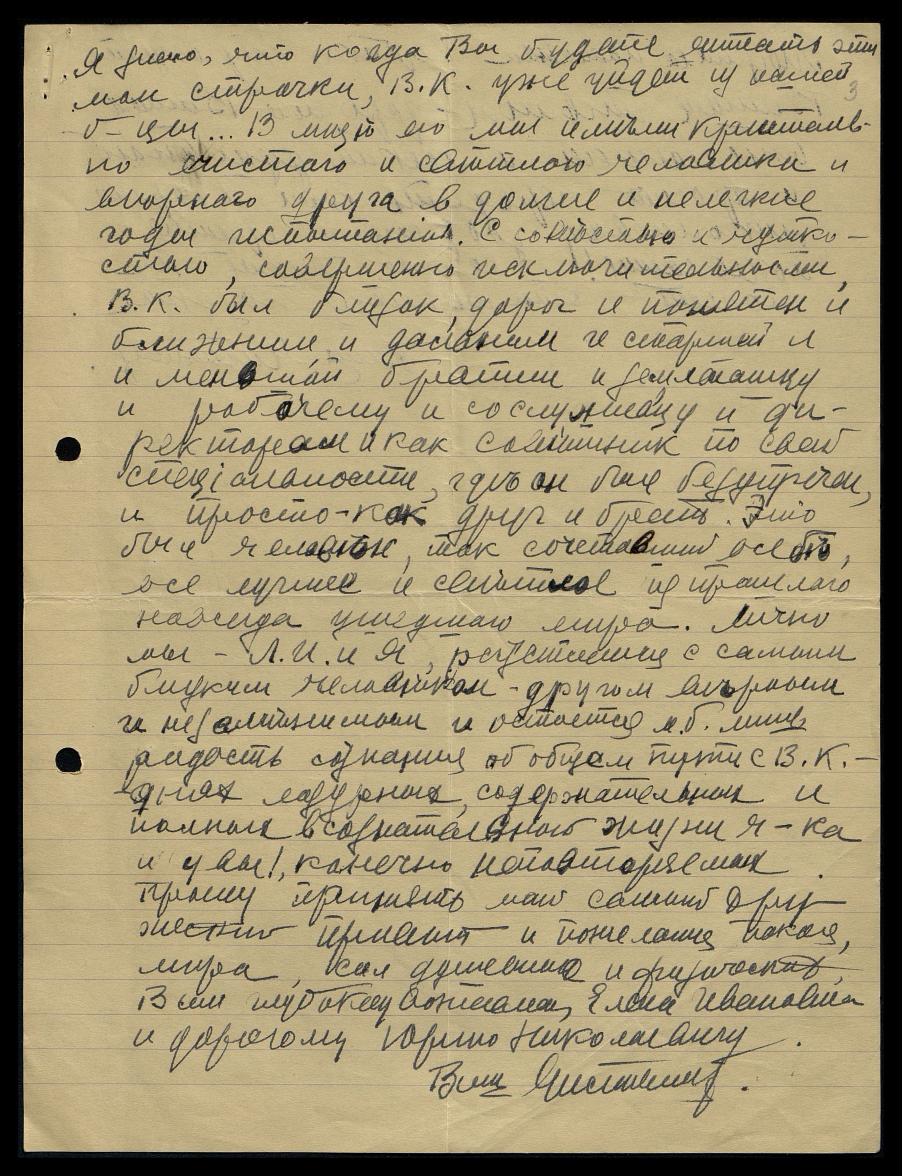 Я знаю, что когда Вы будете читать эти
мои строчки, В.К. уже уйдет из нашей
3
б-цы... В лице его мы имели кристаль-
но чистаго и светлаго человека и
вернаго друга в долгие и нелегкие
годы испытанія. С совестью и чутко-
стью, совершенно исключительностями,
В.К. был близок, дорог и понятен и
ближним и дальним и старшей и
и меньшой братии и
и рабочему и сослуживцу и ди-
ректорам и как советник по своей
спеціальности, где он был безупречен,
и просто - как друг и брат. Это
был человек, так сочетавший в себе,
все лучшее и светлое из прошлаго
навсегда ушедшаго мира. Лично
мы - Л.И. и я, расстаемся с самым
близким человеком - другом верным
и незаменимым и остается м.б. лишь
радость сознания об общем пути с В.К. -
днях лазурных, содержательных и
полных в сознательной жизни ч-ка
и увы!, конечно неповторяемых.
Прошу принять мой самый дру-
жеский привет и пожелания покоя,
мира, сил душевных и физических
Вам глубокоуважаемая Елена Ивановна
и дорогому Юрию Николаевичу.
Ваш